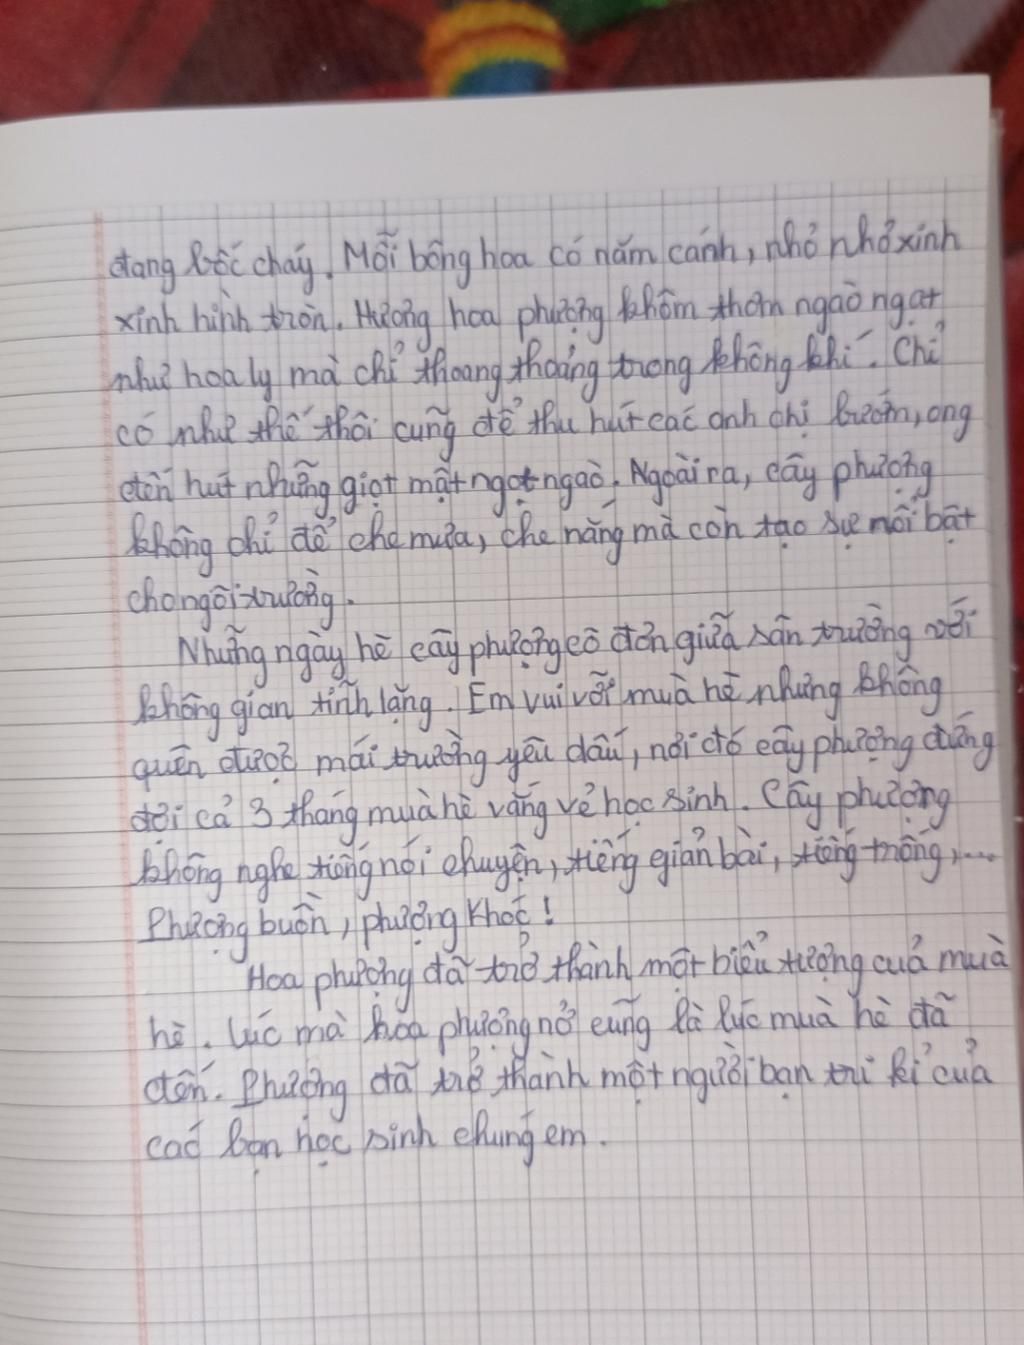 đang bốc cháy. Mỗi bông hoa có năm cánh, nhỏ nhỏ xinh
xinh hình tròn. Hương hoa phượng khôm thơm ngào ngạt
như hoa ly mà chỉ thoang thoảng trong không khí. Chỉ
có như thế thôi cũng để thu hút các anh chị bướm, ong
đến hút những giọt mật ngọt ngào. Ngoài ra, cây phượng
không chỉ để che mưa, che nắng mà còn tạo sự nổi bật
cho ngôi trường.
Những ngày hè cây phượng cô đơn giữa sân trường với
không gian tĩnh lặng. Em vui với mùa hè nhưng không
quên được mái trường yêu dấu, nơi đó cây phượng đứng
đợi cả 3 tháng mùa hè vắng vẻ học sinh. Cây phượng
không nghe tiếng nói chuyện, tiếng giản bài, tiếng trống,...
Phượng buồn, phượng khóc!
Hoa phượng đã trở thành một biểu tượng của mùa
hè. Lúc mà hoa phượng nở cũng là lúc mùa hè đã
đến. Phượng đã trở thành một người bạn tri kỉ của
các bạn học sinh chúng em.